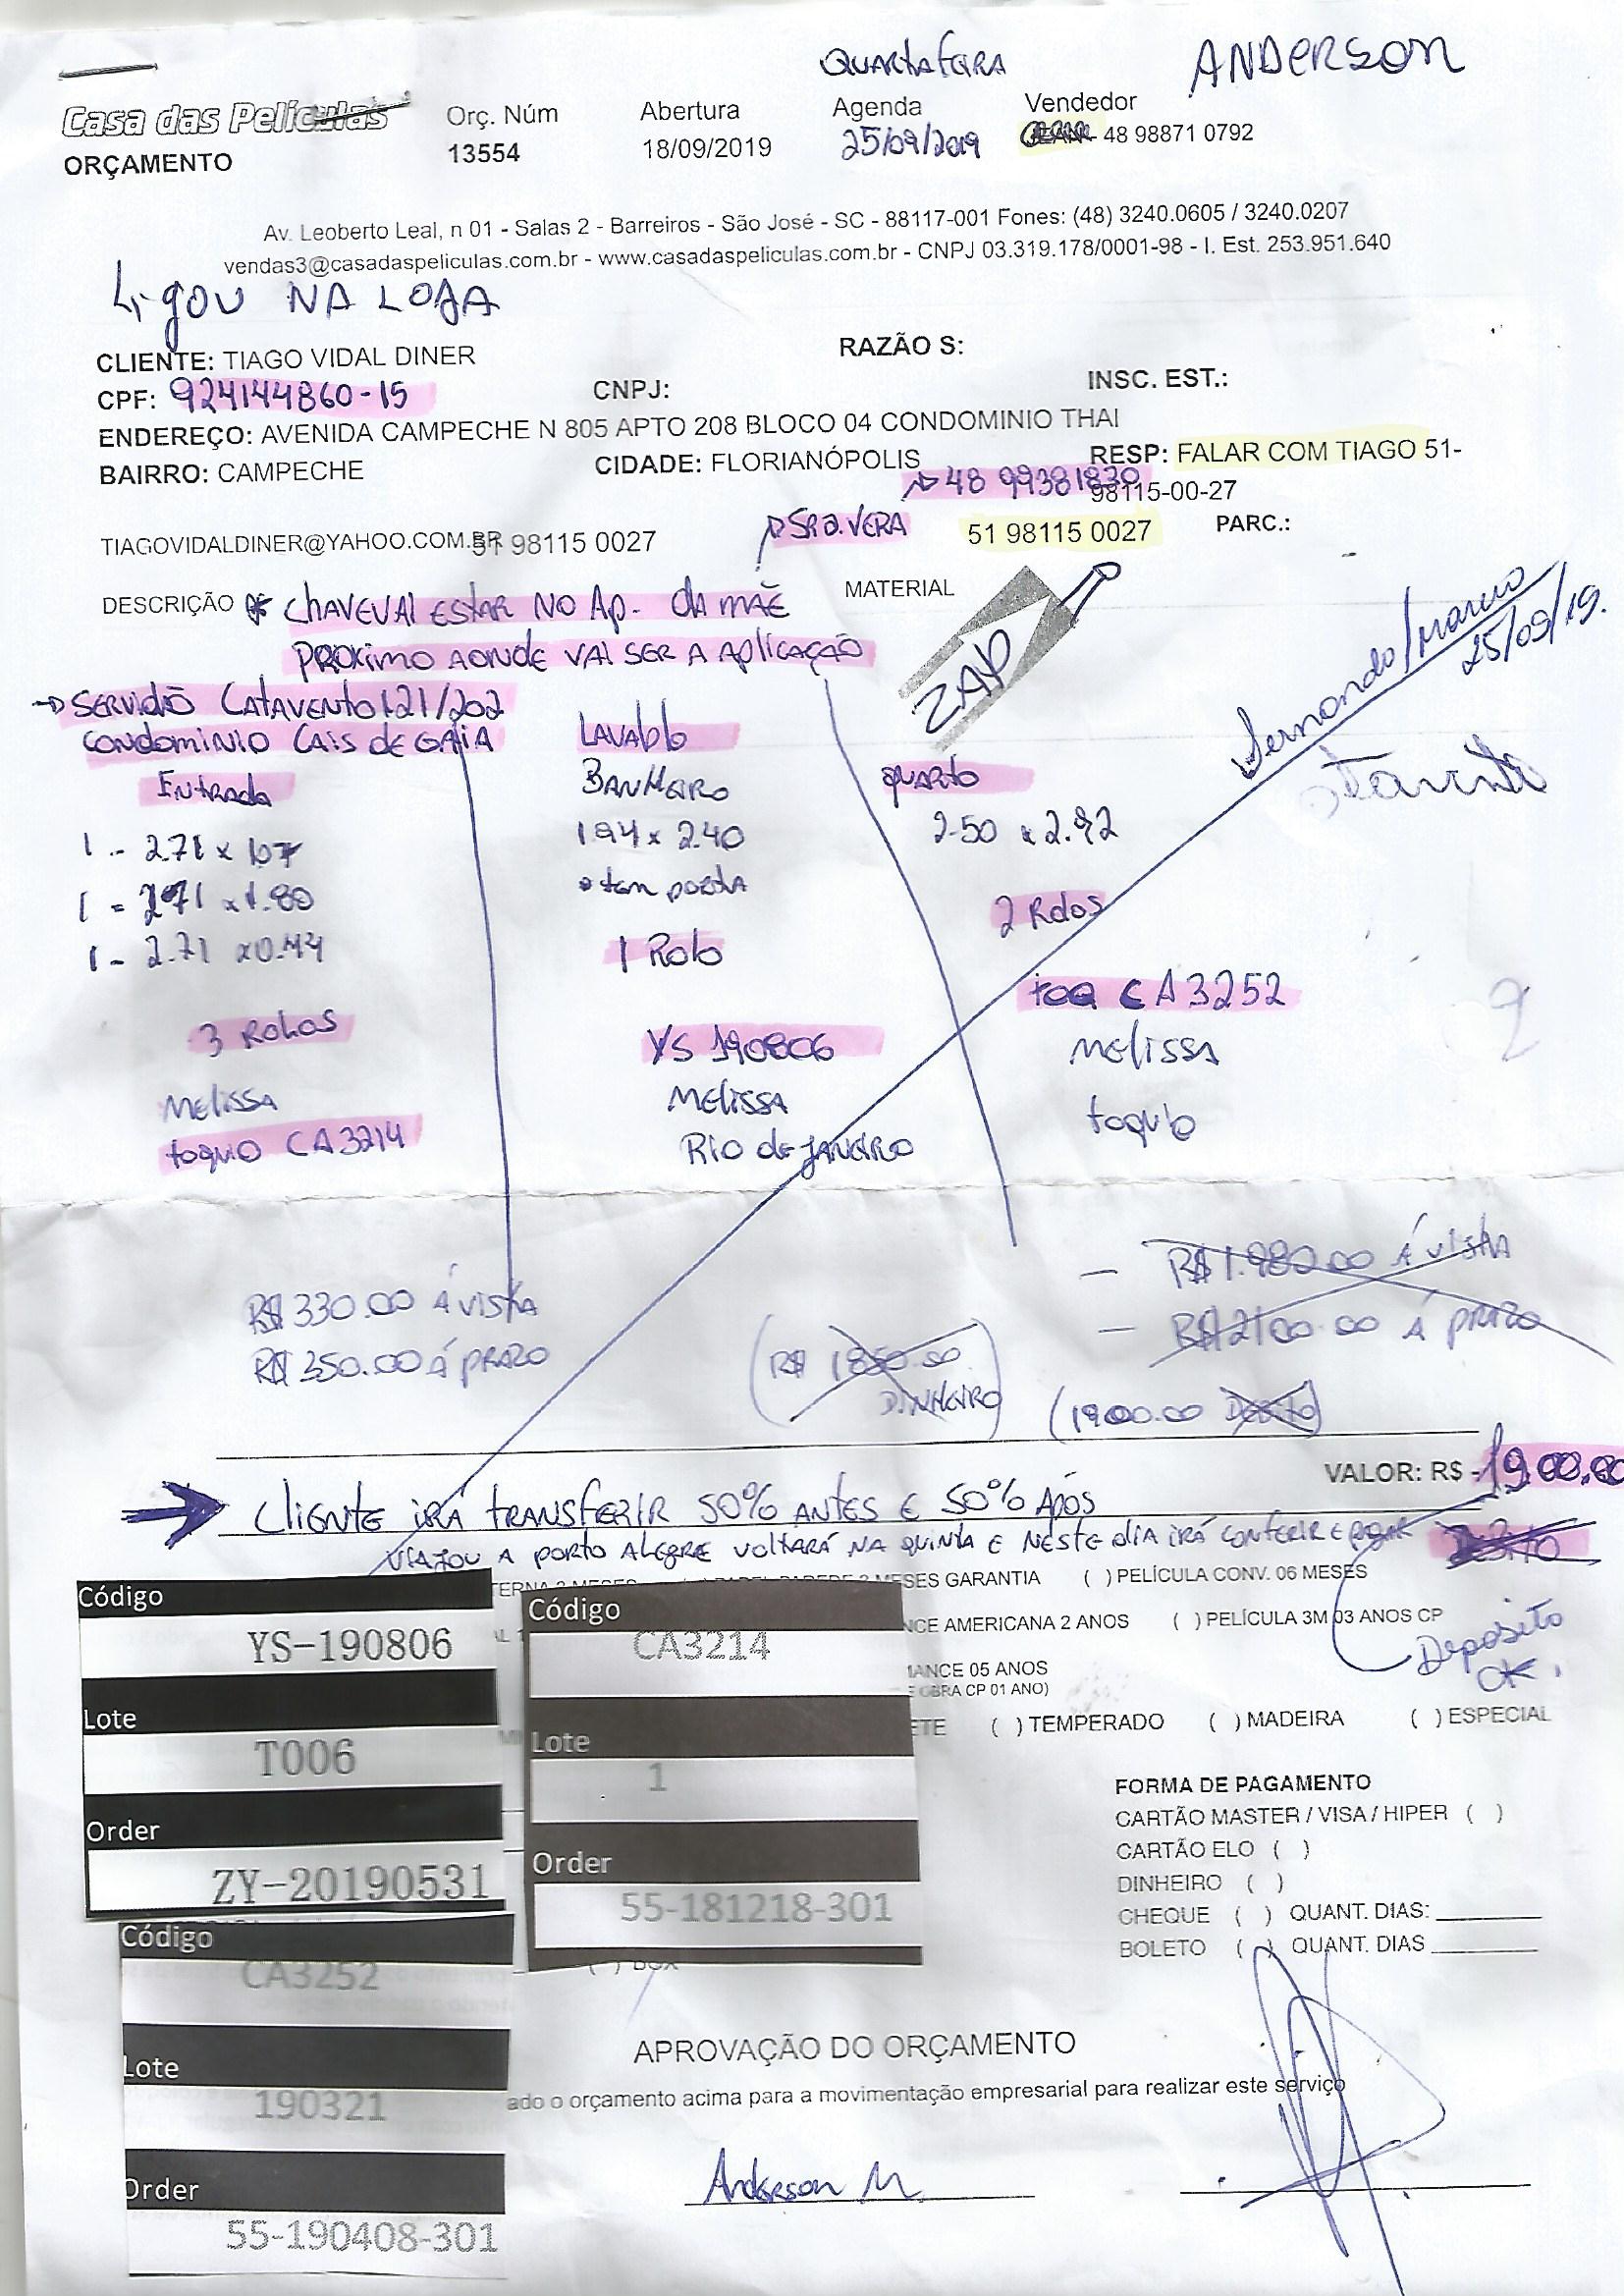 QUARTA FEIRA ANDERSON
Casa das Películas
ORÇAMENTO
Orç. Núm
13554
Abertura
18/09/2019
Agenda
25/09/2019
Vendedor
48 98871 0792
Av. Leoberto Leal, n 01 - Salas 2 - Barreiros - São José - SC - 88117-001 Fones: (48) 3240.0605 / 3240.0207
vendas3@casadaspeliculas.com.br - www.casadaspeliculas.com.br - CNPJ 03.319.178/0001-98 - I. Est. 253.951.640
Ligou NA LOJA
CLIENTE: TIAGO VIDAL DINER RAZÃO S:
CPF: 924144860-15 CNPJ: INSC. EST.:
ENDEREÇO: AVENIDA CAMPECHE N 805 APTO 208 BLOCO 04 CONDOMINIO THAI
BAIRRO: CAMPECHE CIDADE: FLORIANÓPOLIS RESP: FALAR COM TIAGO 51-
48 99381830 98115-00-27
TIAGOVIDALDINER@YAHOO.COM.BR 51 98115 0027 SRA. VERA 51 98115 0027 PARC.:
DESCRIÇÃO CHAVE VAI ESTAR NO Ap. DA MÃE MATERIAL
PROXIMO AONDE VAI SER A APLICAÇÃO
ZAP
Fernando/Marcio
25/09/19.
SERVIDÃO CATAVENTO 121/202
CONDOMINIO CAIS DE GAIA
Entrada
1 - 2.71 x 1.07
1 - 2.71 x 1.80
1 - 2.71 x 0.44
3 Rolos
MELISSA
toquio CA3214
LAVABO
BANHEIRO
1.94 x 2.40
tem porta
1 Rolo
YS 190806
MELISSA
RIO de JANEIRO
quarto
2.50 x 2.92
2 Rolos
toq CA3252
MELISSA
toquio
R$ 330.00 Á VISTA
R$ 350.00 á PRAZO
(R$ 1850.00
DINHEIRO)
- R$ 1.982.00 Á VISTA
- R$ 2100.00 Á PRAZO
(1900.00 Debito)
VALOR: R$ - 1900.00
CLIENTE IRÁ TRANSFERIR 50% ANTES E 50% APÓS
VIAJOU A PORTO ALEGRE VOLTARÁ NA QUINTA E NESTE DIA IRÁ CONFERIR E PAGAR
Debito
Deposito
OK.
MESES GARANTIA ( ) PELÍCULA CONV. 06 MESES
NCE AMERICANA 2 ANOS ( ) PELÍCULA 3M 03 ANOS CP
MANCE 05 ANOS
OBRA CP 01 ANO)
ETE ( ) TEMPERADO ( ) MADEIRA ( ) ESPECIAL
Código
YS-190806
Lote
T006
Order
ZY-20190531
Código
CA3214
Lote
1
Order
55-181218-301
Código
CA3252
Lote
190321
Order
55-190408-301
( ) BOX
FORMA DE PAGAMENTO
CARTÃO MASTER / VISA / HIPER ( )
CARTÃO ELO ( )
DINHEIRO ( )
CHEQUE ( ) QUANT. DIAS:
BOLETO ( ) QUANT. DIAS
APROVAÇÃO DO ORÇAMENTO
ado o orçamento acima para a movimentação empresarial para realizar este serviço
Anderson M.